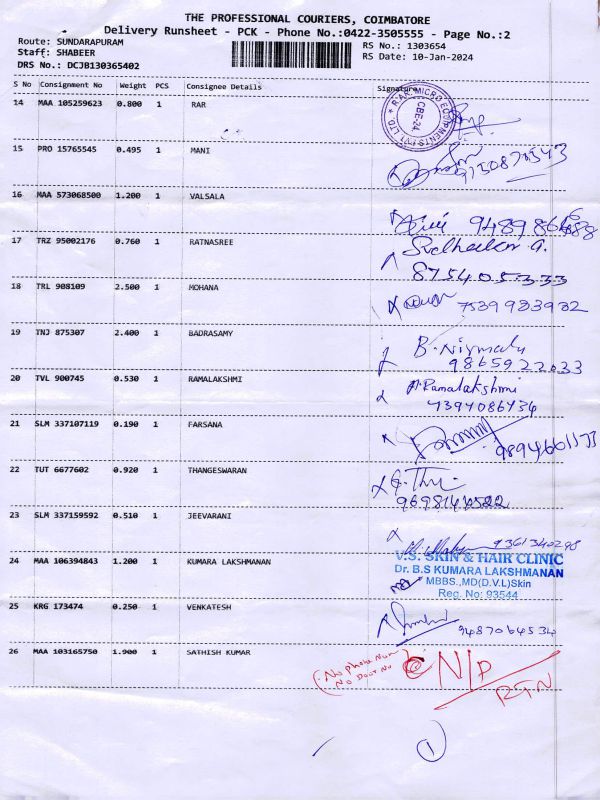 THE PROFESSIONAL COURIERS, COIMBATORE
Delivery Runsheet - PCK - Phone No.:0422-3505555 - Page No.:2
Route: SUNDARAPURAM
RS No.: 1303654
Staff: SHABEER
RS Date: 10-Jan-2024
DRS No.: DCJB130365402
S No Consignment No Weight PCS Consignee Details Signature
14 MAA 105259623 0.800 1 RAR
RAR MICRO EQUIPMENTS PVT LTD. CBE-24
15 PRO 15765545 0.495 1 MANI
9150870543
16 MAA 573068500 1.200 1 VALSALA
17 TRZ 95002176 0.760 1 RATNASREE
Sudhakar G.
8754053333
18 TRL 908109 2.500 1 MOHANA
7539983982
19 TNJ 875307 2.400 1 BADRASAMY
B. Nirmala
9865922033
20 TVL 900745 0.530 1 RAMALAKSHMI
A. Ramalakshmi
7394086434
21 SLM 337107119 0.190 1 FARSANA
22 TUT 6677602 0.920 1 THANGESWARAN
23 SLM 337159592 0.510 1 JEEVARANI
9361340298
24 MAA 106394843 1.200 1 KUMARA LAKSHMANAN
V.S. SKIN & HAIR CLINIC
Dr. B.S KUMARA LAKSHMANAN
MBBS.,MD(D.V.L)Skin
Reg. No: 93544
25 KRG 173474 0.250 1 VENKATESH
9487064534
26 MAA 103165750 1.900 1 SATHISH KUMAR
(No phone Num
No Door No)
N/P
RTN
1